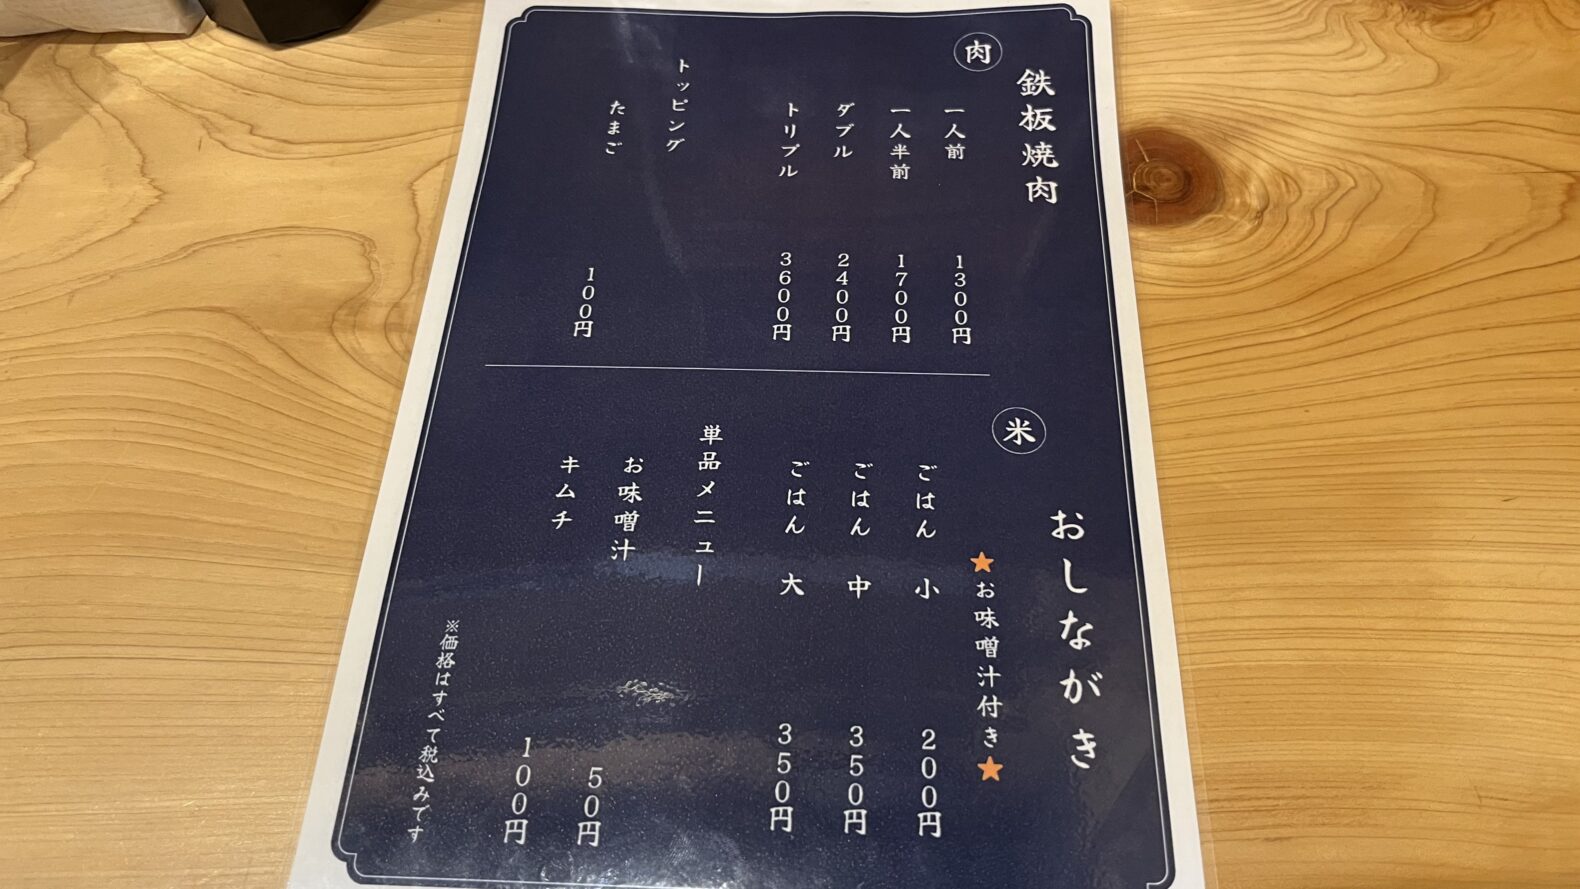 鉄板焼肉 おしながき
肉
一人前 1300円
一人半前 1700円
ダブル 2400円
トリプル 3600円
トッピング
たまご 100円
米
★お味噌汁付き★
ごはん 小 200円
ごはん 中 350円
ごはん 大 350円
単品メニュー
お味噌汁 50円
キムチ 100円
※価格はすべて税込みです